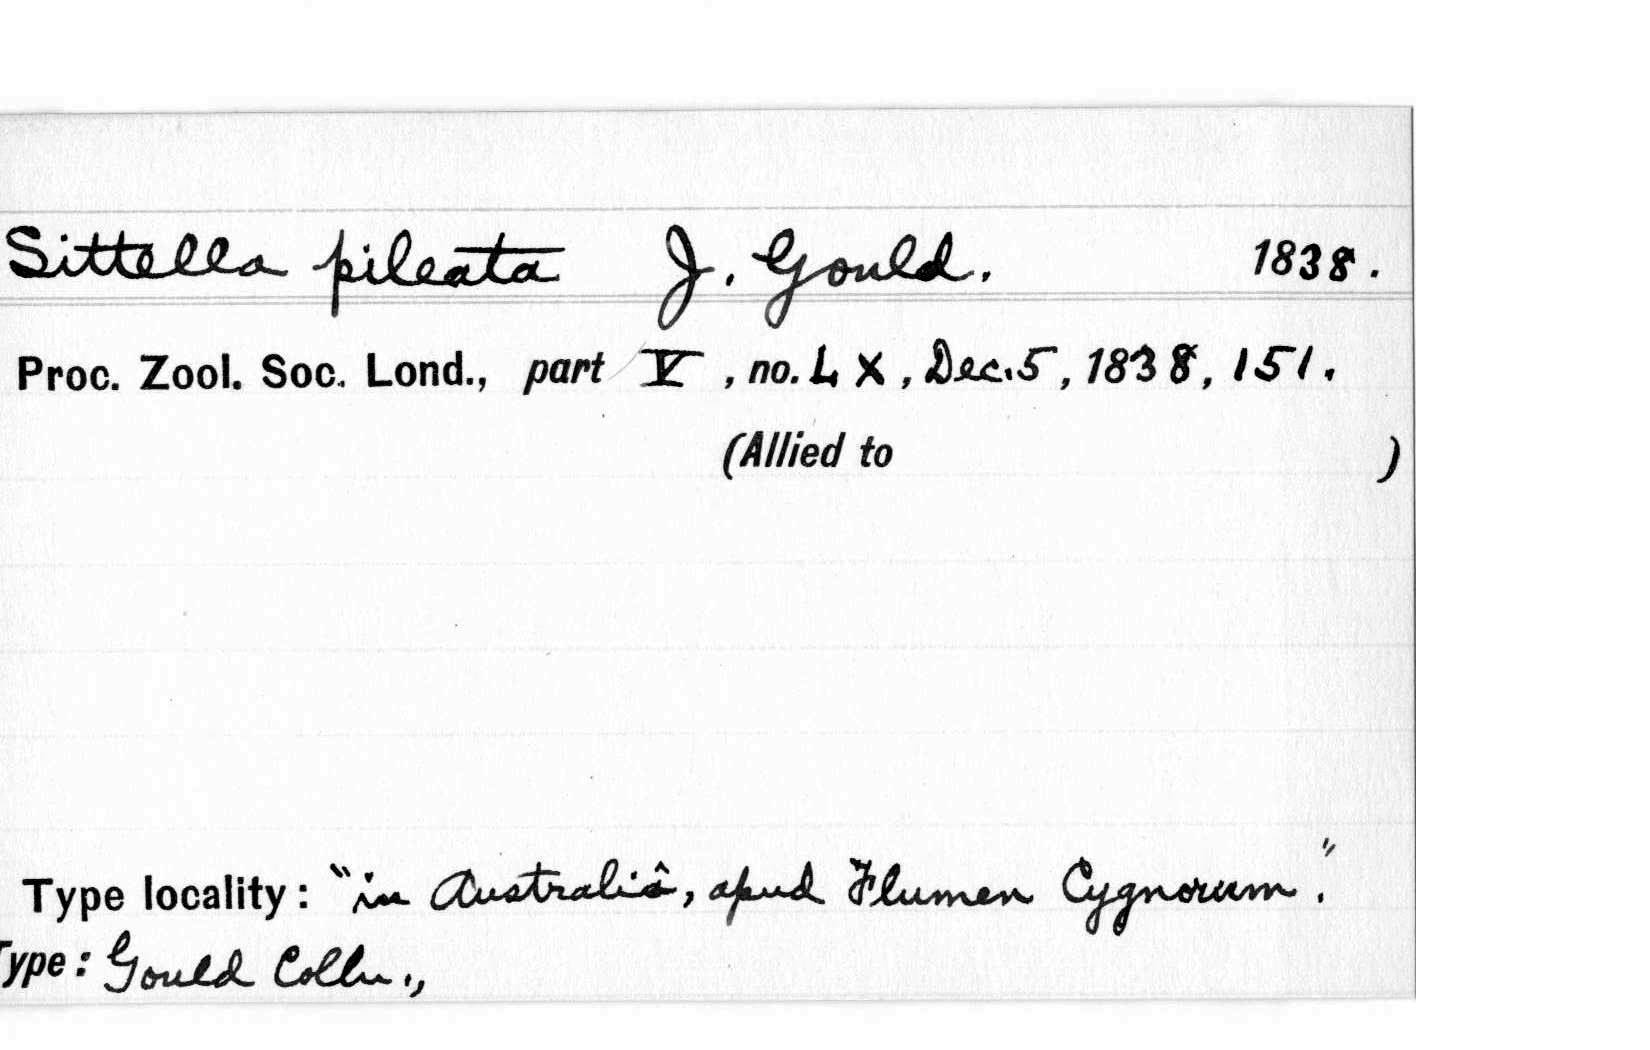 Sittella pileata J. Gould. 1838.
Proc. Zool. Soc. Lond., part V, no. LX, Dec. 5, 1838, 151.
(Allied to )
Type locality: "in Australiâ, apud Flumen Cygnorum."
Type: Gould Colln.,